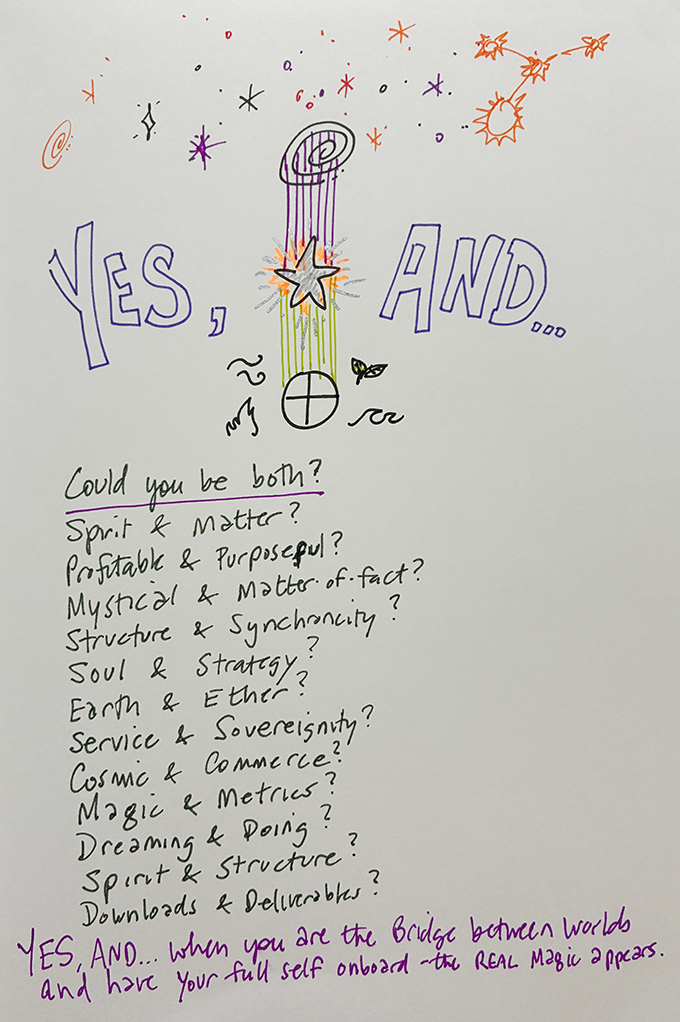 YES, AND...
Could you be both?
Spirit & Matter?
Profitable & Purposeful?
Mystical & Matter-of-fact?
Structure & Synchroncity?
Soul & Strategy?
Earth & Ether?
Service & Sovereignity?
Cosmic & Commerce?
Magic & Metrics?
Dreaming & Doing?
Spirit & Structure?
Downloads & Deliverables?
YES, AND... when you are the Bridge between worlds
and have your full self onboard - the REAL Magic appears.